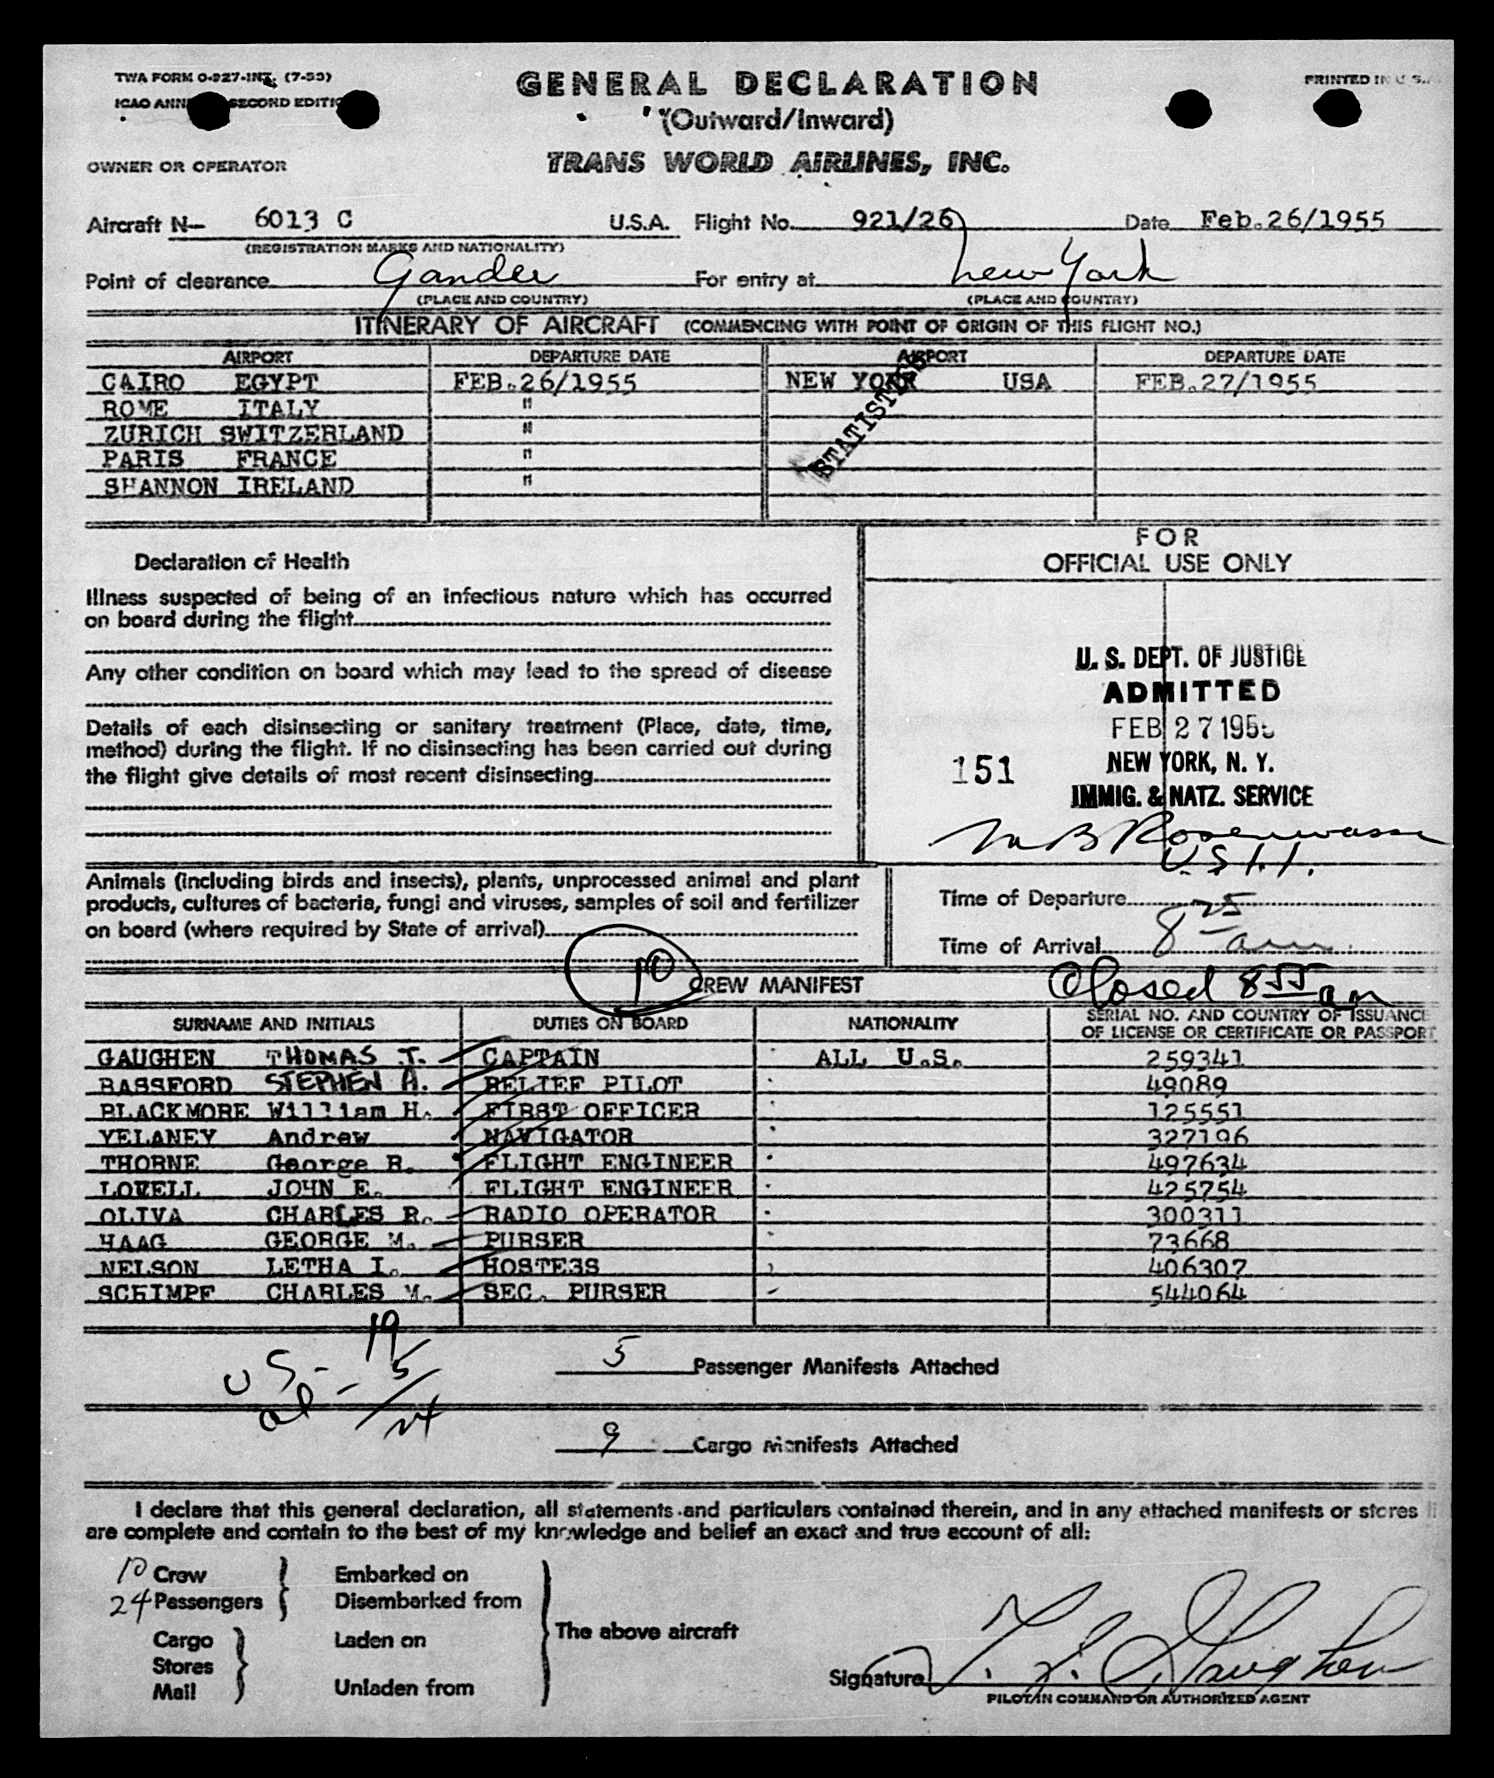 TWA FORM O-927-INT. (7-53)
GENERAL DECLARATION
PRINTED IN U.S.
ICAO SECOND EDITION
(Outward/Inward)
OWNER OR OPERATOR
TRANS WORLD AIRLINES, INC.
Aircraft N— 6013 C U.S.A. Flight No. 921/26 Date Feb.26/1955
(REGISTRATION MARKS AND NATIONALITY)
Point of clearance Gander For entry at New York
(PLACE AND COUNTRY) (PLACE AND COUNTRY)
ITINERARY OF AIRCRAFT (COMMENCING WITH POINT OF ORIGIN OF THIS FLIGHT NO.)
AIRPORT DEPARTURE DATE AIRPORT DEPARTURE DATE
CAIRO EGYPT FEB.26/1955 NEW YORK USA FEB.27/1955
ROME ITALY "
ZURICH SWITZERLAND "
PARIS FRANCE "
SHANNON IRELAND "
FOR
OFFICIAL USE ONLY
Declaration of Health
Illness suspected of being of an infectious nature which has occurred
on board during the flight
Any other condition on board which may lead to the spread of disease
Details of each disinsecting or sanitary treatment (Place, date, time,
method) during the flight. If no disinsecting has been carried out during
the flight give details of most recent disinsecting
U. S. DEPT. OF JUSTICE
ADMITTED
FEB 27 1955
151 NEW YORK, N. Y.
IMMIG. & NATZ. SERVICE
M B Rosenwasser
U.S.I.I.
Animals (including birds and insects), plants, unprocessed animal and plant
products, cultures of bacteria, fungi and viruses, samples of soil and fertilizer
on board (where required by State of arrival)
Time of Departure
Time of Arrival 8 25 am
10 CREW MANIFEST Closed 8 55 am
SURNAME AND INITIALS DUTIES ON BOARD NATIONALITY SERIAL NO. AND COUNTRY OF ISSUANCE
OF LICENSE OR CERTIFICATE OR PASSPORT
GAUGHEN THOMAS J. CAPTAIN ALL U.S. 259341
BASSFORD STEPHEN A. RELIEF PILOT 49089
BLACKMORE William H. FIRST OFFICER 125551
YELANEY Andrew NAVIGATOR 327196
THORNE George R. FLIGHT ENGINEER 497634
LOVELL JOHN E. FLIGHT ENGINEER 425754
OLIVA CHARLES R. RADIO OPERATOR 300311
HAAG GEORGE M. PURSER 73668
NELSON LETHA I. HOSTESS 406307
SCHIMPF CHARLES M. SEC. PURSER 544064
US - 19
al - 5
24
5 Passenger Manifests Attached
9 Cargo Manifests Attached
I declare that this general declaration, all statements and particulars contained therein, and in any attached manifests or stores li
are complete and contain to the best of my knowledge and belief an exact and true account of all:
10 Crew
24 Passengers
Embarked on
Disembarked from
Cargo
Stores
Mail
Laden on
Unladen from
The above aircraft
Signature T. J. Gaughen
PILOT IN COMMAND OR AUTHORIZED AGENT